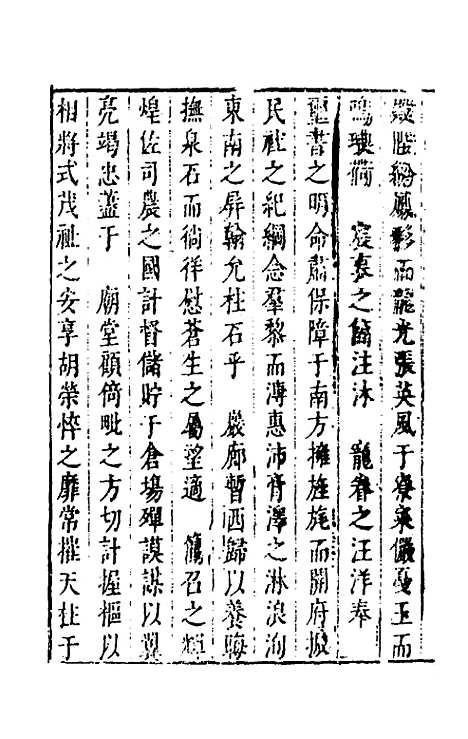 嶽陛綰鳳彩而龍光張英風于寮寀儼戞玉而
鳴珮荷　宸衷之簡注沐　寵眷之汪洋奉
璽書之明命肅保障于南方擁旌旄而開府振
民社之紀綱念羣黎而溥惠沛膏澤之淋浪洵
東南之屏翰允柱石乎　巖廊暫西歸以養晦
撫泉石而徜徉慰蒼生之屬望適　寵召之輝
煌佐司農之國計督儲貯于倉場殫謨謀以翼
亮竭忠藎于　廟堂顧倚毗之方切計握樞以
相將式茂祉之安享胡榮悴之靡常摧天柱于